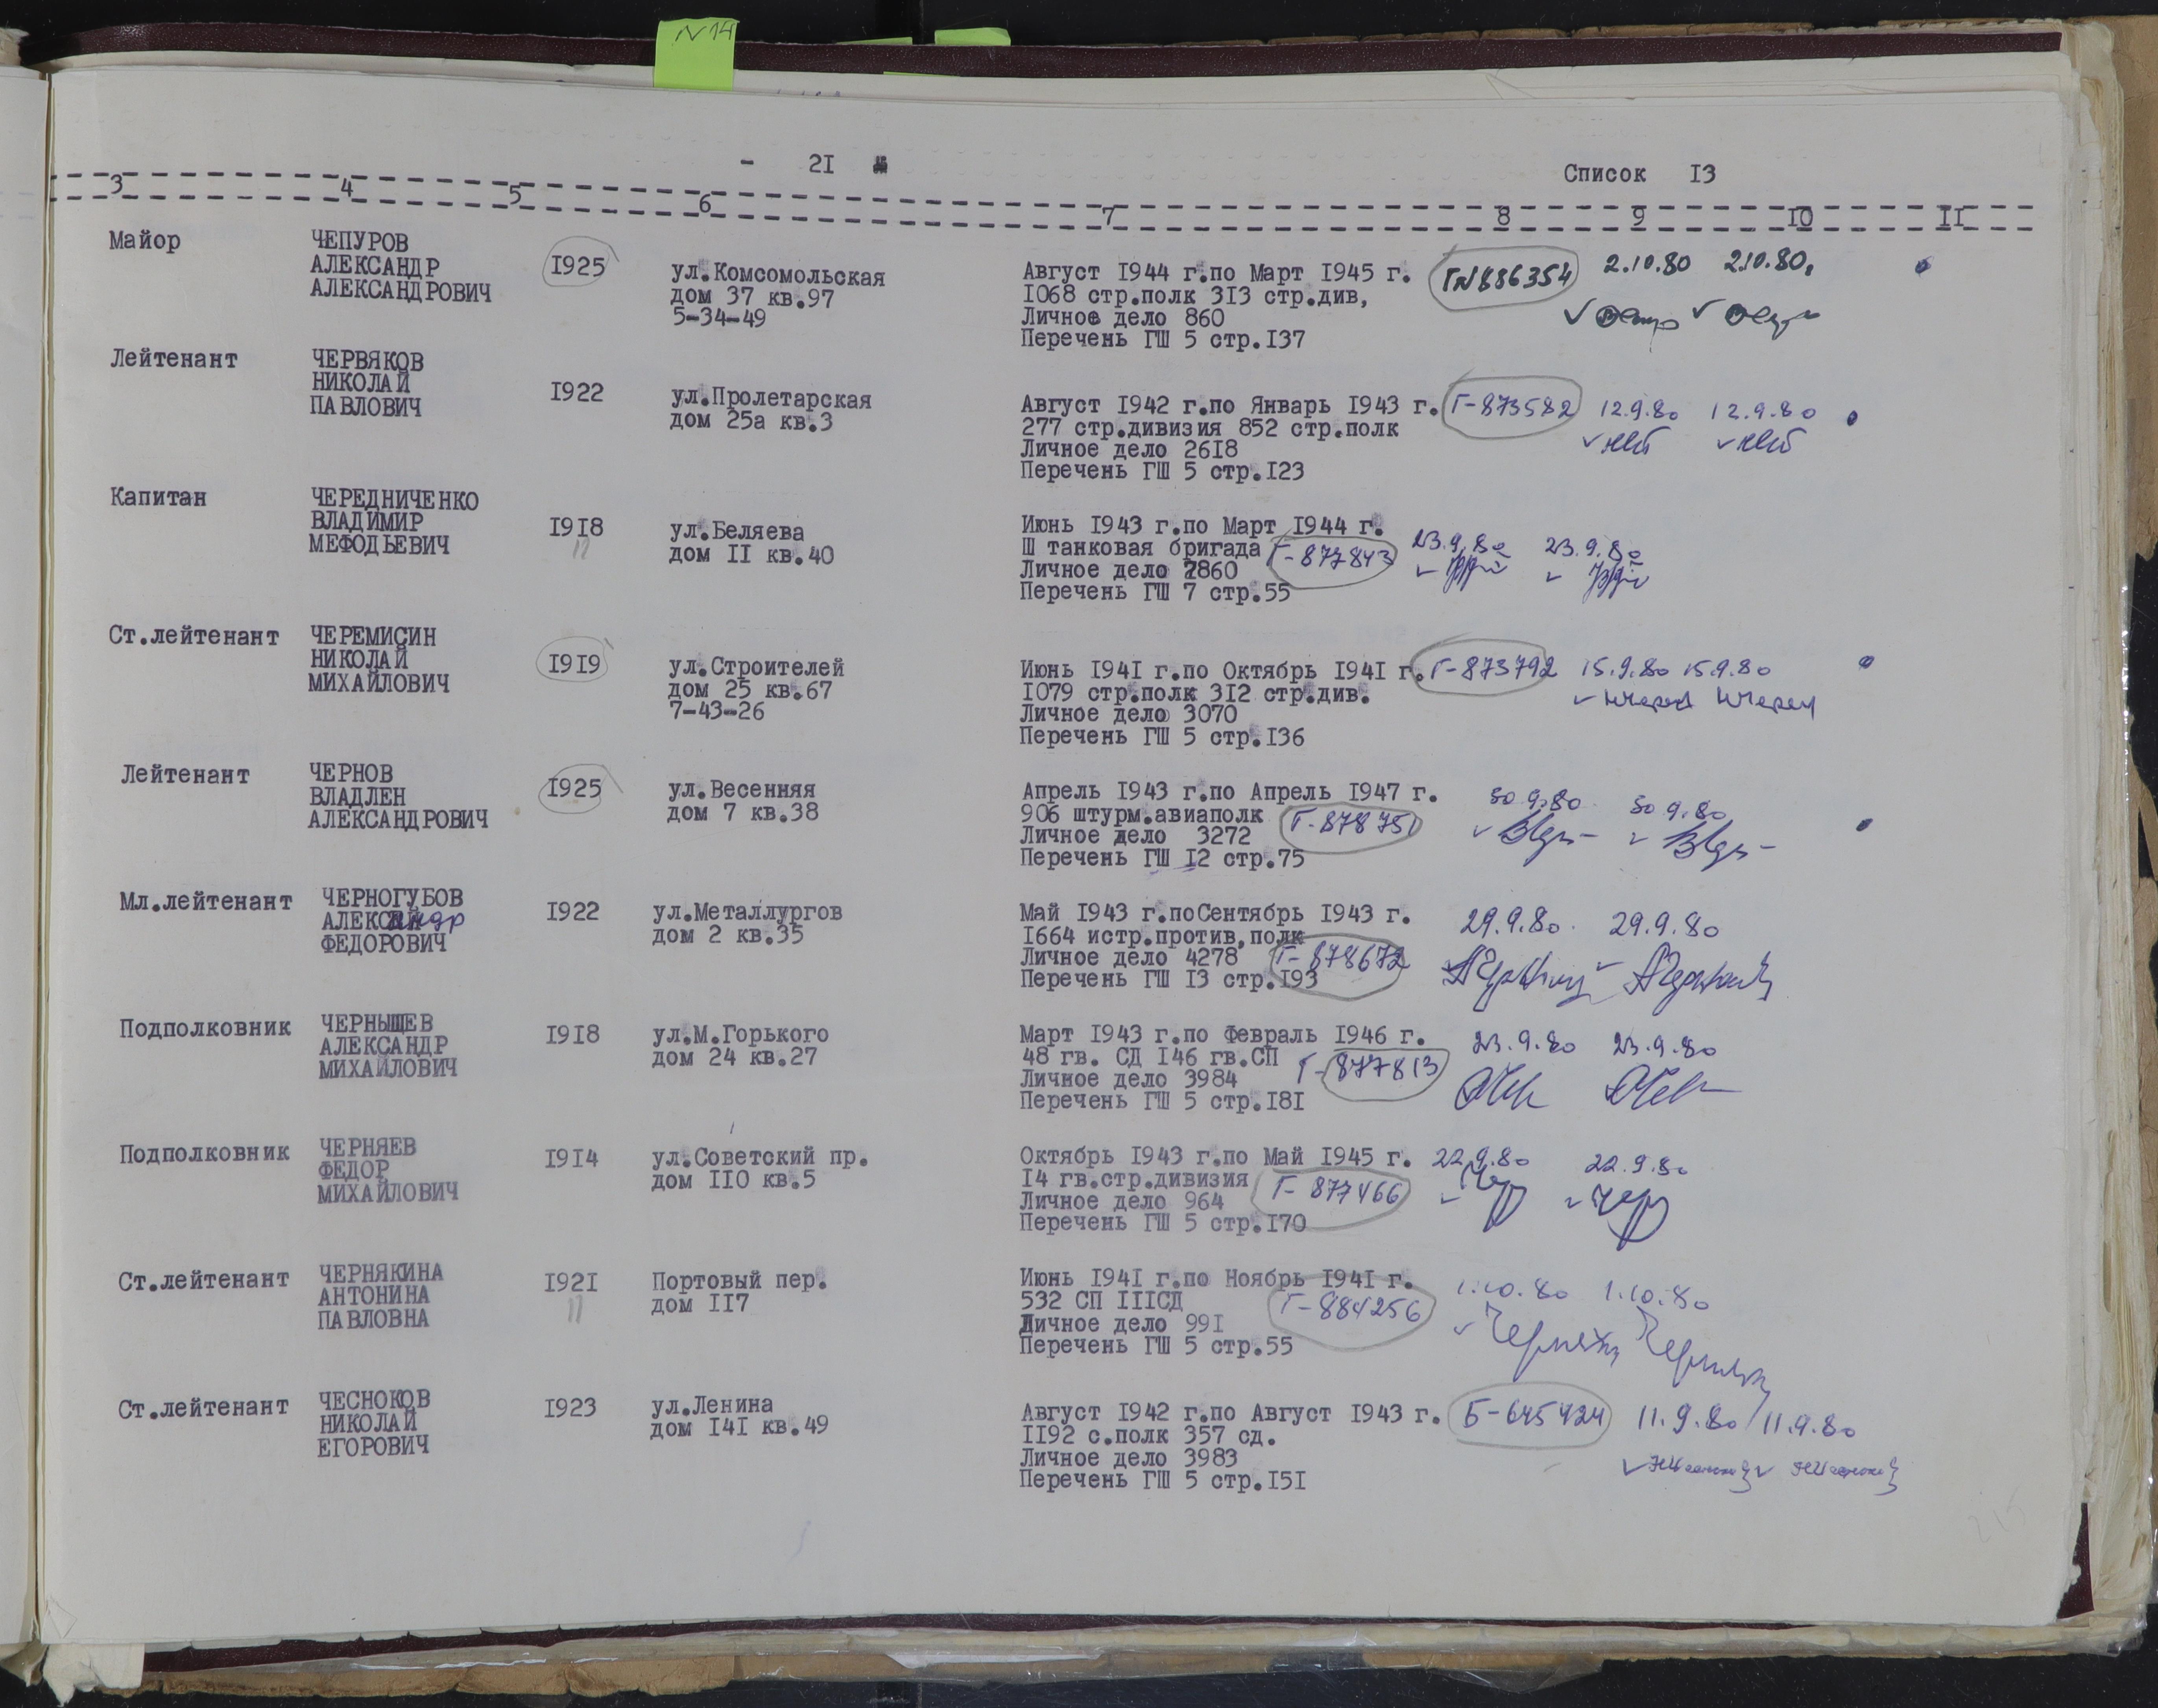 N14
- 21
Список 13
3 4 5 6 7 8 9 10 11
Майор
ЧЕПУРОВ
АЛЕКСАНДР
АЛЕКСАНДРОВИЧ
1925
ул.Комсомольская
дом 37 кв.97
5-34-49
Август 1944 г.по Март 1945 г.
1068 стр.полк 313 стр.див,
Личное дело 860
Перечень ГШ 5 стр.137
Г№886354 2.10.80 2.10.80
Лейтенант
ЧЕРВЯКОВ
НИКОЛАЙ
ПАВЛОВИЧ
1922
ул.Пролетарская
дом 25а кв.3
Август 1942 г.по Январь 1943 г.
277 стр.дивизия 852 стр.полк
Личное дело 2618
Перечень ГШ 5 стр.123
Г-873582 12.9.80 12.9.80
Капитан
ЧЕРЕДНИЧЕНКО
ВЛАДИМИР
МЕФОДЬЕВИЧ
1918
ул.Беляева
дом 11 кв.40
Июнь 1943 г.по Март 1944 г.
Ш танковая бригада
Личное дело 2860
Перечень ГШ 7 стр.55
Г-877843 23.9.80 23.9.80
Ст.лейтенант
ЧЕРЕМИСИН
НИКОЛАЙ
МИХАЙЛОВИЧ
1919
ул.Строителей
дом 25 кв.67
7-43-26
Июнь 1941 г.по Октябрь 1941 г.
1079 стр.полк 312 стр.див.
Личное дело 3070
Перечень ГШ 5 стр.136
Г-873792 15.9.80 15.9.80
Лейтенант
ЧЕРНОВ
ВЛАДЛЕН
АЛЕКСАНДРОВИЧ
1925
ул.Весенняя
дом 7 кв.38
Апрель 1943 г.по Апрель 1947 г.
906 штурм.авиаполк
Личное дело 3272
Перечень ГШ 12 стр.75
Г-878751 30.9.80 30.9.80
Мл.лейтенант
ЧЕРНОГУБОВ
АЛЕКСандр
ФЕДОРОВИЧ
1922
ул.Металлургов
дом 2 кв.35
Май 1943 г.поСентябрь 1943 г.
1664 истр.против.полк
Личное дело 4278
Перечень ГШ 13 стр.193
Г-878672 29.9.80 29.9.80
Подполковник
ЧЕРНЫШЕВ
АЛЕКСАНДР
МИХАЙЛОВИЧ
1918
ул.М.Горького
дом 24 кв.27
Март 1943 г.по Февраль 1946 г.
48 гв. СД 146 гв.СП
Личное дело 3984
Перечень ГШ 5 стр.181
Г-877813 23.9.80 23.9.80
Подполковник
ЧЕРНЯЕВ
ФЕДОР
МИХАЙЛОВИЧ
1914
ул.Советский пр.
дом 110 кв.5
Октябрь 1943 г.по Май 1945 г.
14 гв.стр.дивизия
Личное дело 964
Перечень ГШ 5 стр.170
Г-877466 22.9.80 22.9.80
Ст.лейтенант
ЧЕРНЯКИНА
АНТОНИНА
ПАВЛОВНА
1921
Портовый пер.
дом 117
Июнь 1941 г.по Ноябрь 1941 г.
532 СП 111СД
Личное дело 991
Перечень ГШ 5 стр.55
Г-884256 1.10.80 1.10.80
Ст.лейтенант
ЧЕСНОКОВ
НИКОЛАЙ
ЕГОРОВИЧ
1923
ул.Ленина
дом 141 кв.49
Август 1942 г.по Август 1943 г.
1192 с.полк 357 сд.
Личное дело 3983
Перечень ГШ 5 стр.151
Б-645424 11.9.80 11.9.80